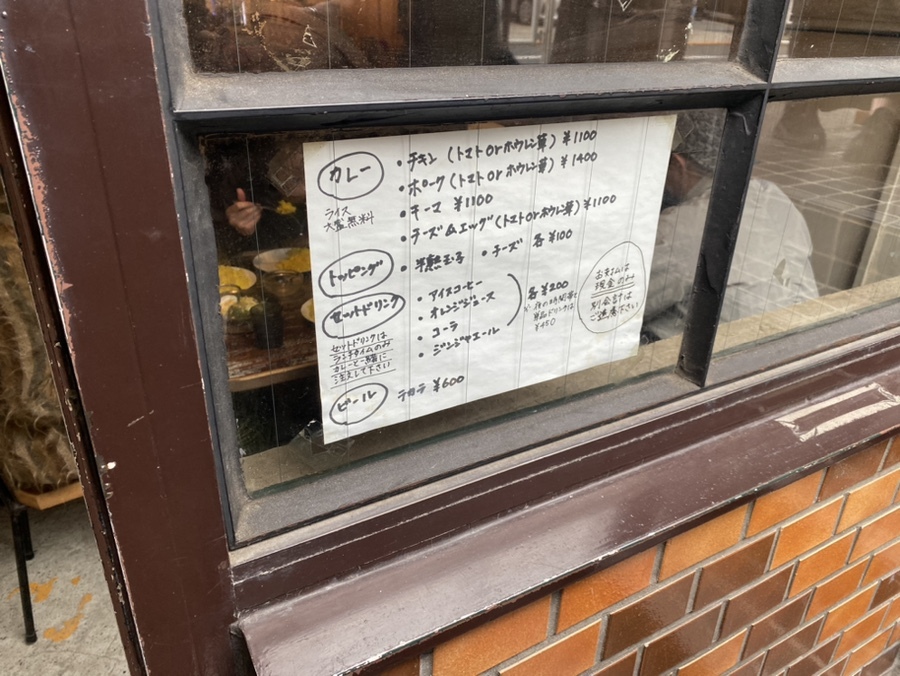 カレー
・チキン (トマトorホウレン草) ¥1100
・ポーク(トマトorホウレン草) ¥1400
・キーマ ¥1100
・チーズ&エッグ(トマトorホウレン草) ¥1100
ライス
大盛無料
トッピング
・半熟玉子 ・チーズ 各¥100
セットドリンク
・アイスコーヒー
・オレンジジュース
・コーラ
・ジンジャエール
各¥200
単品ドリンクは
¥450
セットドリンクは
ランチタイムのみ
カレーと一緒に
注文して下さい
お支払は
現金のみ
別会計は
ご遠慮下さい
ビール
¥600